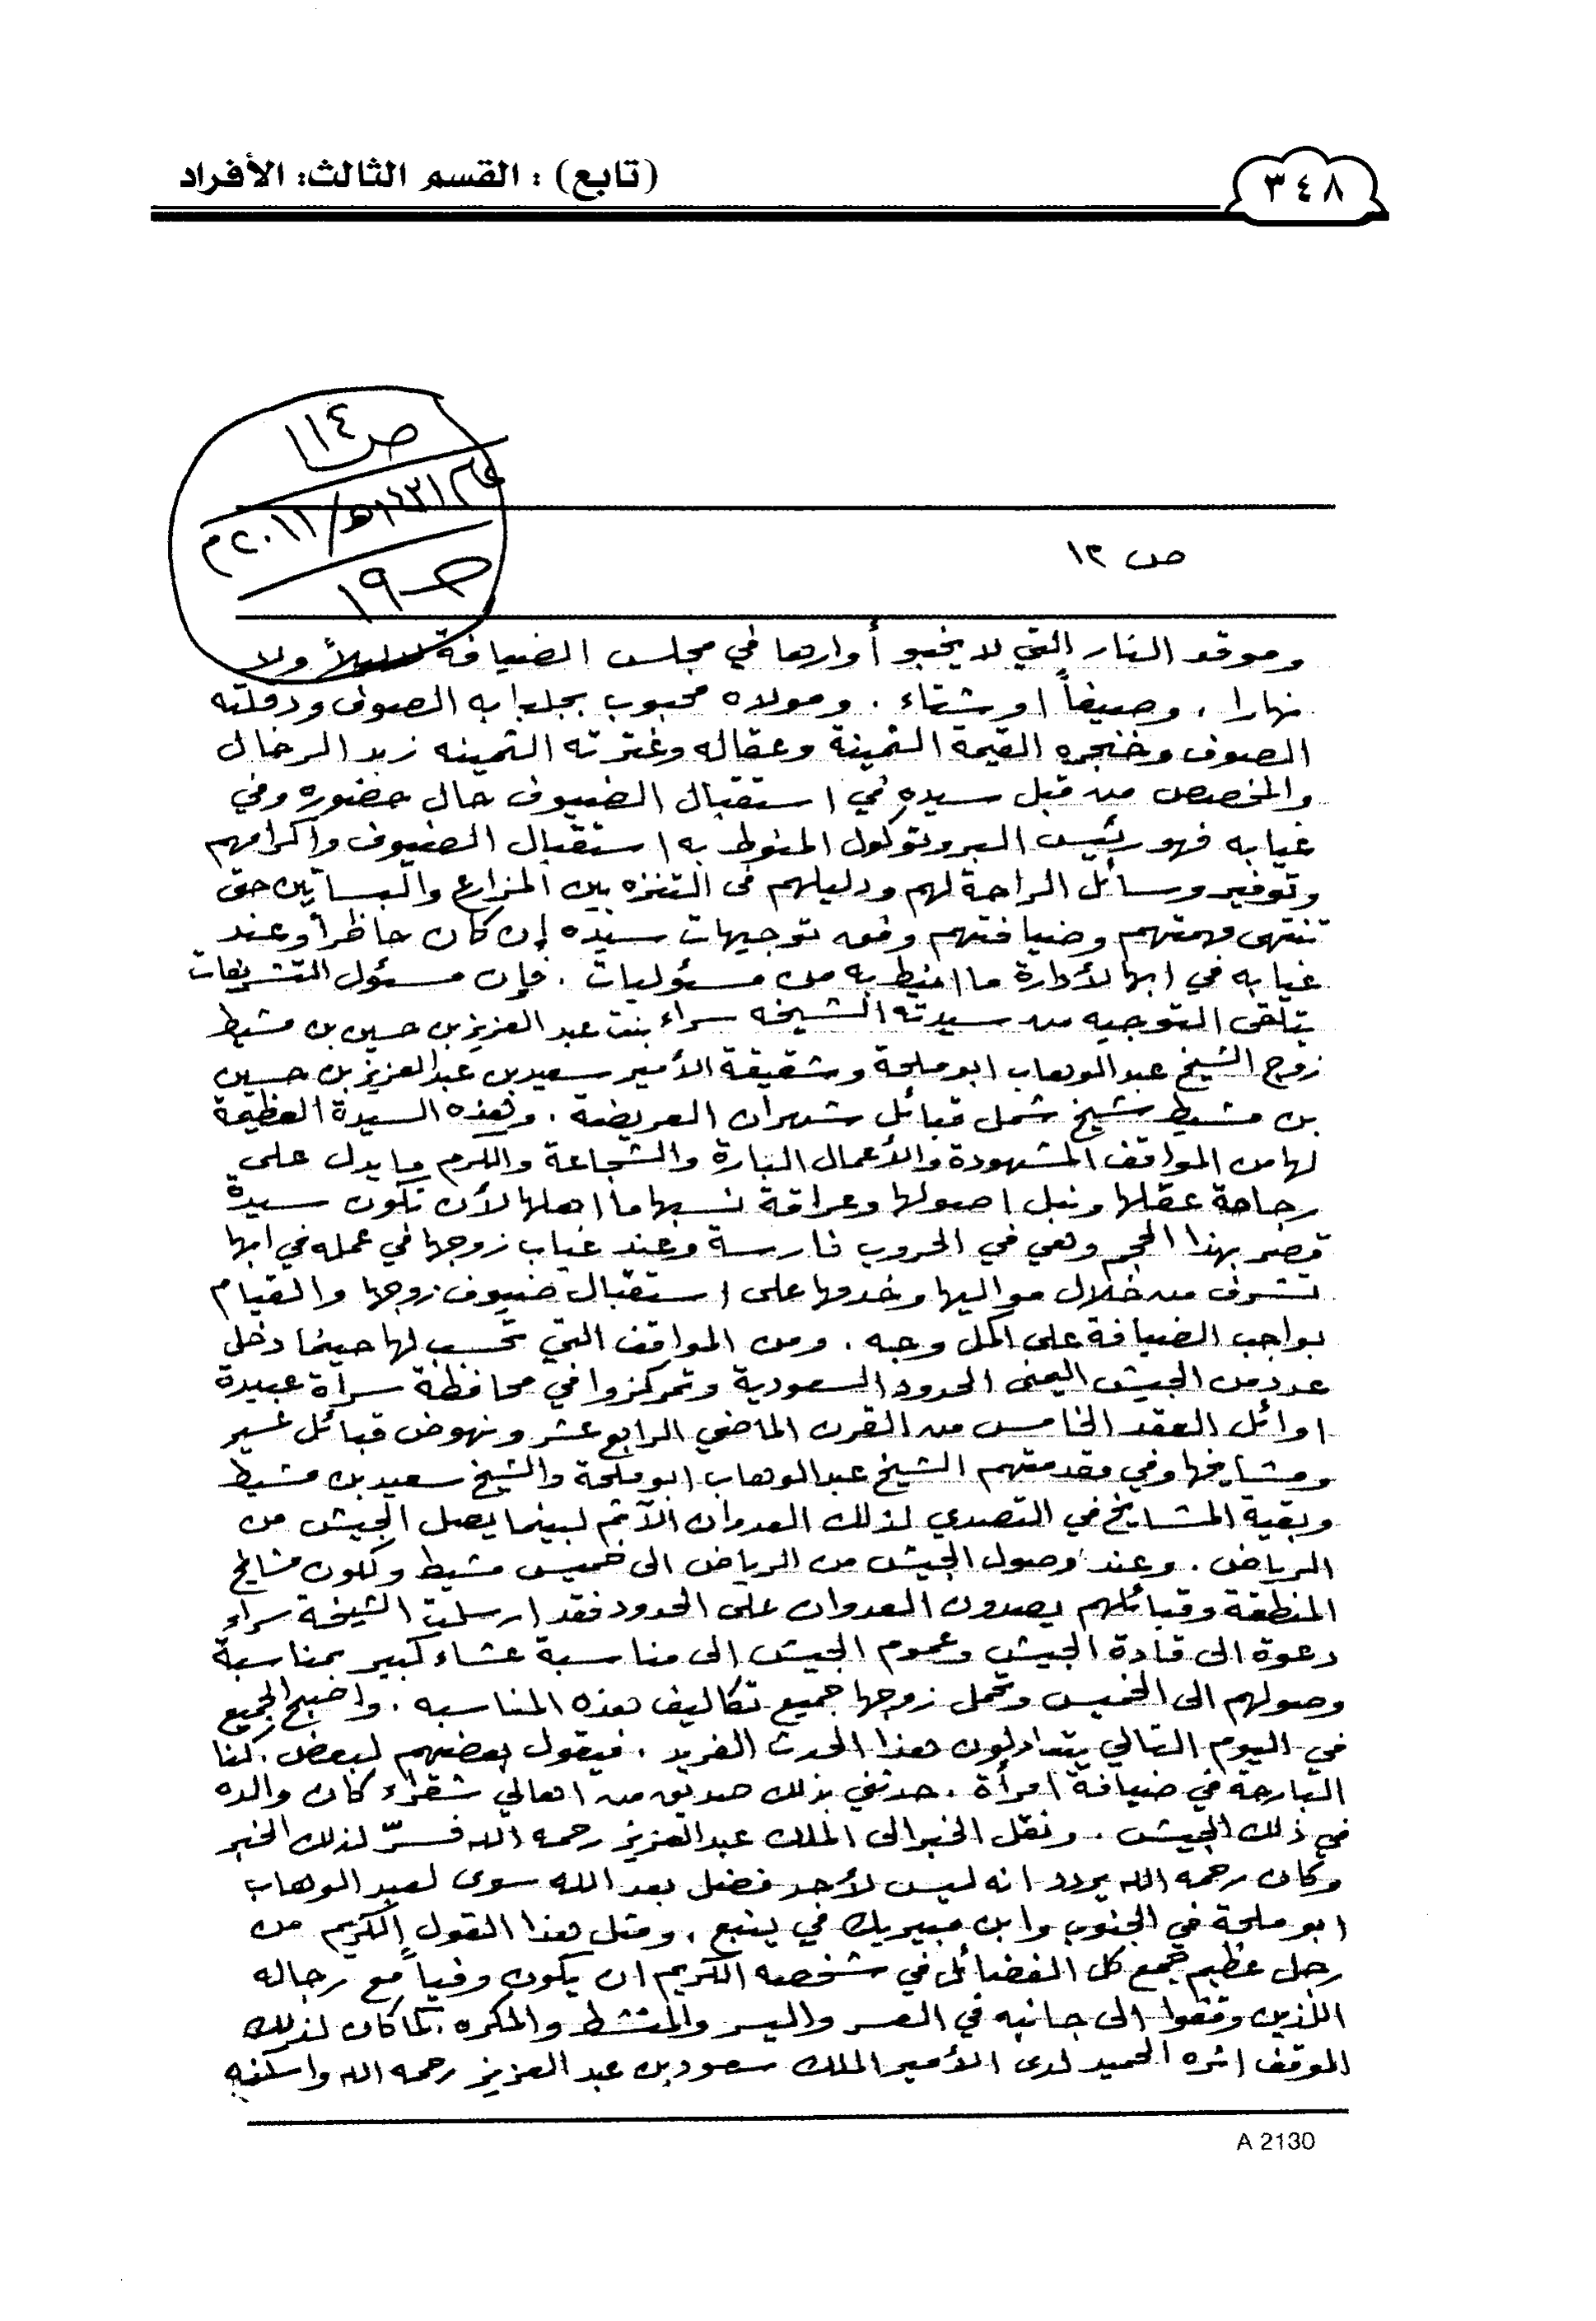 (تابع) : القسم الثالث: الأفراد
٣٤٨
ص ١١٤
١٤٣١هـ/٢٠١١م
ص ١٩
ص ١٣
وموقد النار التي لا يخبو أوارها في مجلس الضيافة لا ليلاً ولا
نهارا ، وصيفاً او شتاء . ومولاه محبوب بجلبابه الصوف ودقلته
الصوف وخنجره القيمة الثمينة وعقاله وغترته الثمينه زبد الرخال
والمخصص من قبل سيده في استقبال الضيوف حال حضوره وفي
غيابه فهو رئيس البروتوكول المنوط به استقبال الضيوف واكرامهم
وتوفير وسائل الراحة لهم ودليلهم فى التنزه بين المزارع والبساتين حتى
تنتهى مهمتهم وضيافتهم وفق توجيهات سيده إن كان حاظراً وعند
غيابه في ابها لأدارة ما انيط به من مسئوليات . فإن مسئول التشريفات
يتلقى التوجيه من سيدته الشيخه سراء بنت عبد العزيز بن حسين بن مشيط
زوج الشيخ عبدالوهاب ابوملحة وشقيقة الأمير سعيد بن عبدالعزيز بن حسين
بن مشيط شيخ شمل قبائل شهران العريضة . وهذه السيدة العظيمة
لها من المواقف المشهودة والأعمال البارة والشجاعة والكرم ما يدل على
رجاحة عقلها ونبل اصولها وعراقة نسبها ما اهلها لأن تكون سيدة
قصر بهذا الحجم وهي في الحروب فارسة وعند غياب زوجها في عمله في ابها
تشرف من خلال مواليها وخدمها على استقبال ضيوف زوجها والقيام
بواجب الضيافة على اكمل وجه . ومن المواقف التي تحسب لها حينما دخل
عدد من الجيش اليمنى الحدود السعودية وتمركزوا في محافظة سراة عبيدة
اوائل العقد الخامس من القرن الماضي الرابع عشر ونهوض قبائل عسير
ومشايخها وفي مقدمتهم الشيخ عبدالوهاب ابوملحة والشيخ سعيد بن مشيط
وبقية المشايخ في التصدي لذلك العدوان الآثم لبينما يصل الجيش من
الرياض . وعند وصول الجيش من الرياض الى خميس مشيط ولكون مشايخ
المنطقة وقبائلهم يصدون العدوان على الحدود فقد ارسلت الشيخة سراء
دعوة الى قادة الجيش وعموم الجيش الى مناسبة عشاء كبير بمناسبة
وصولهم الى الخميس وتحمل زوجها جميع تكاليف هذه المناسبه . واصبح الجميع
في اليوم التالي يتبادلون هذا الحدث الفريد . فيقول بعضهم لبعض . كنا
البارحة في ضيافة امرأة . حدثني بذلك صديق من اهالي شقراء كان والده
في ذلك الجيش . ونقل الخبر الى الملك عبدالعزيز رحمه الله فسرّ لذلك الخبر
وكان رحمه الله يردد انه ليس لأحد فضل بعد الله سوى لعبد الوهاب
ابو ملحة في الجنوب وابن مبيريك في ينبع . ومثل هذا القول الكريم من
رجل عظيم جمع كل الفضائل في شخصه الكريم ان يكون وفياً مع رجاله
اللذين وقفوا الى جانبه في العسر واليسر والمنشط والمكره . كما كان لذلك
الموقف اثره الحميد لدى الأمير الملك سعود بن عبد العزيز رحمه الله واسكنه
A 2130